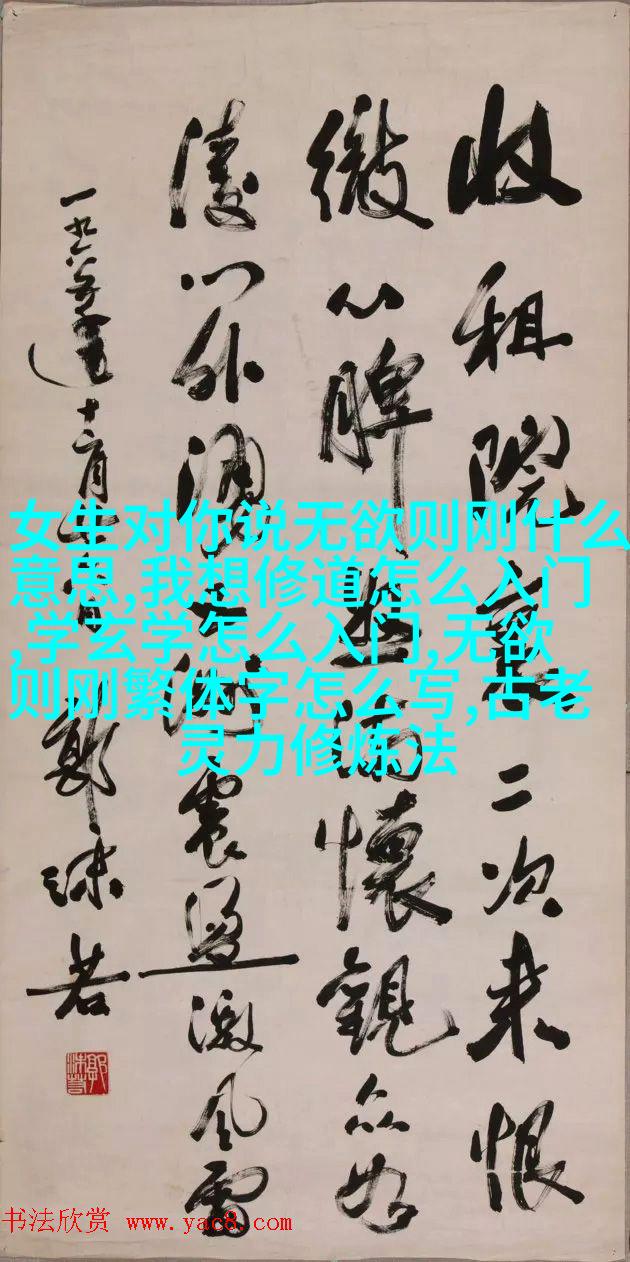 收租院裏二次来恨
徹心脾血滿懷觀衆如
濤门外湧五洲震盪激风雷
一九六
十二月
郭沫若
女生对你说无欲则刚什么
意思,我想修道怎么入门
,学玄学怎么入门,无欲
则刚繁体字怎么写,古老
灵力修炼法
书法欣赏 www.yac8.com